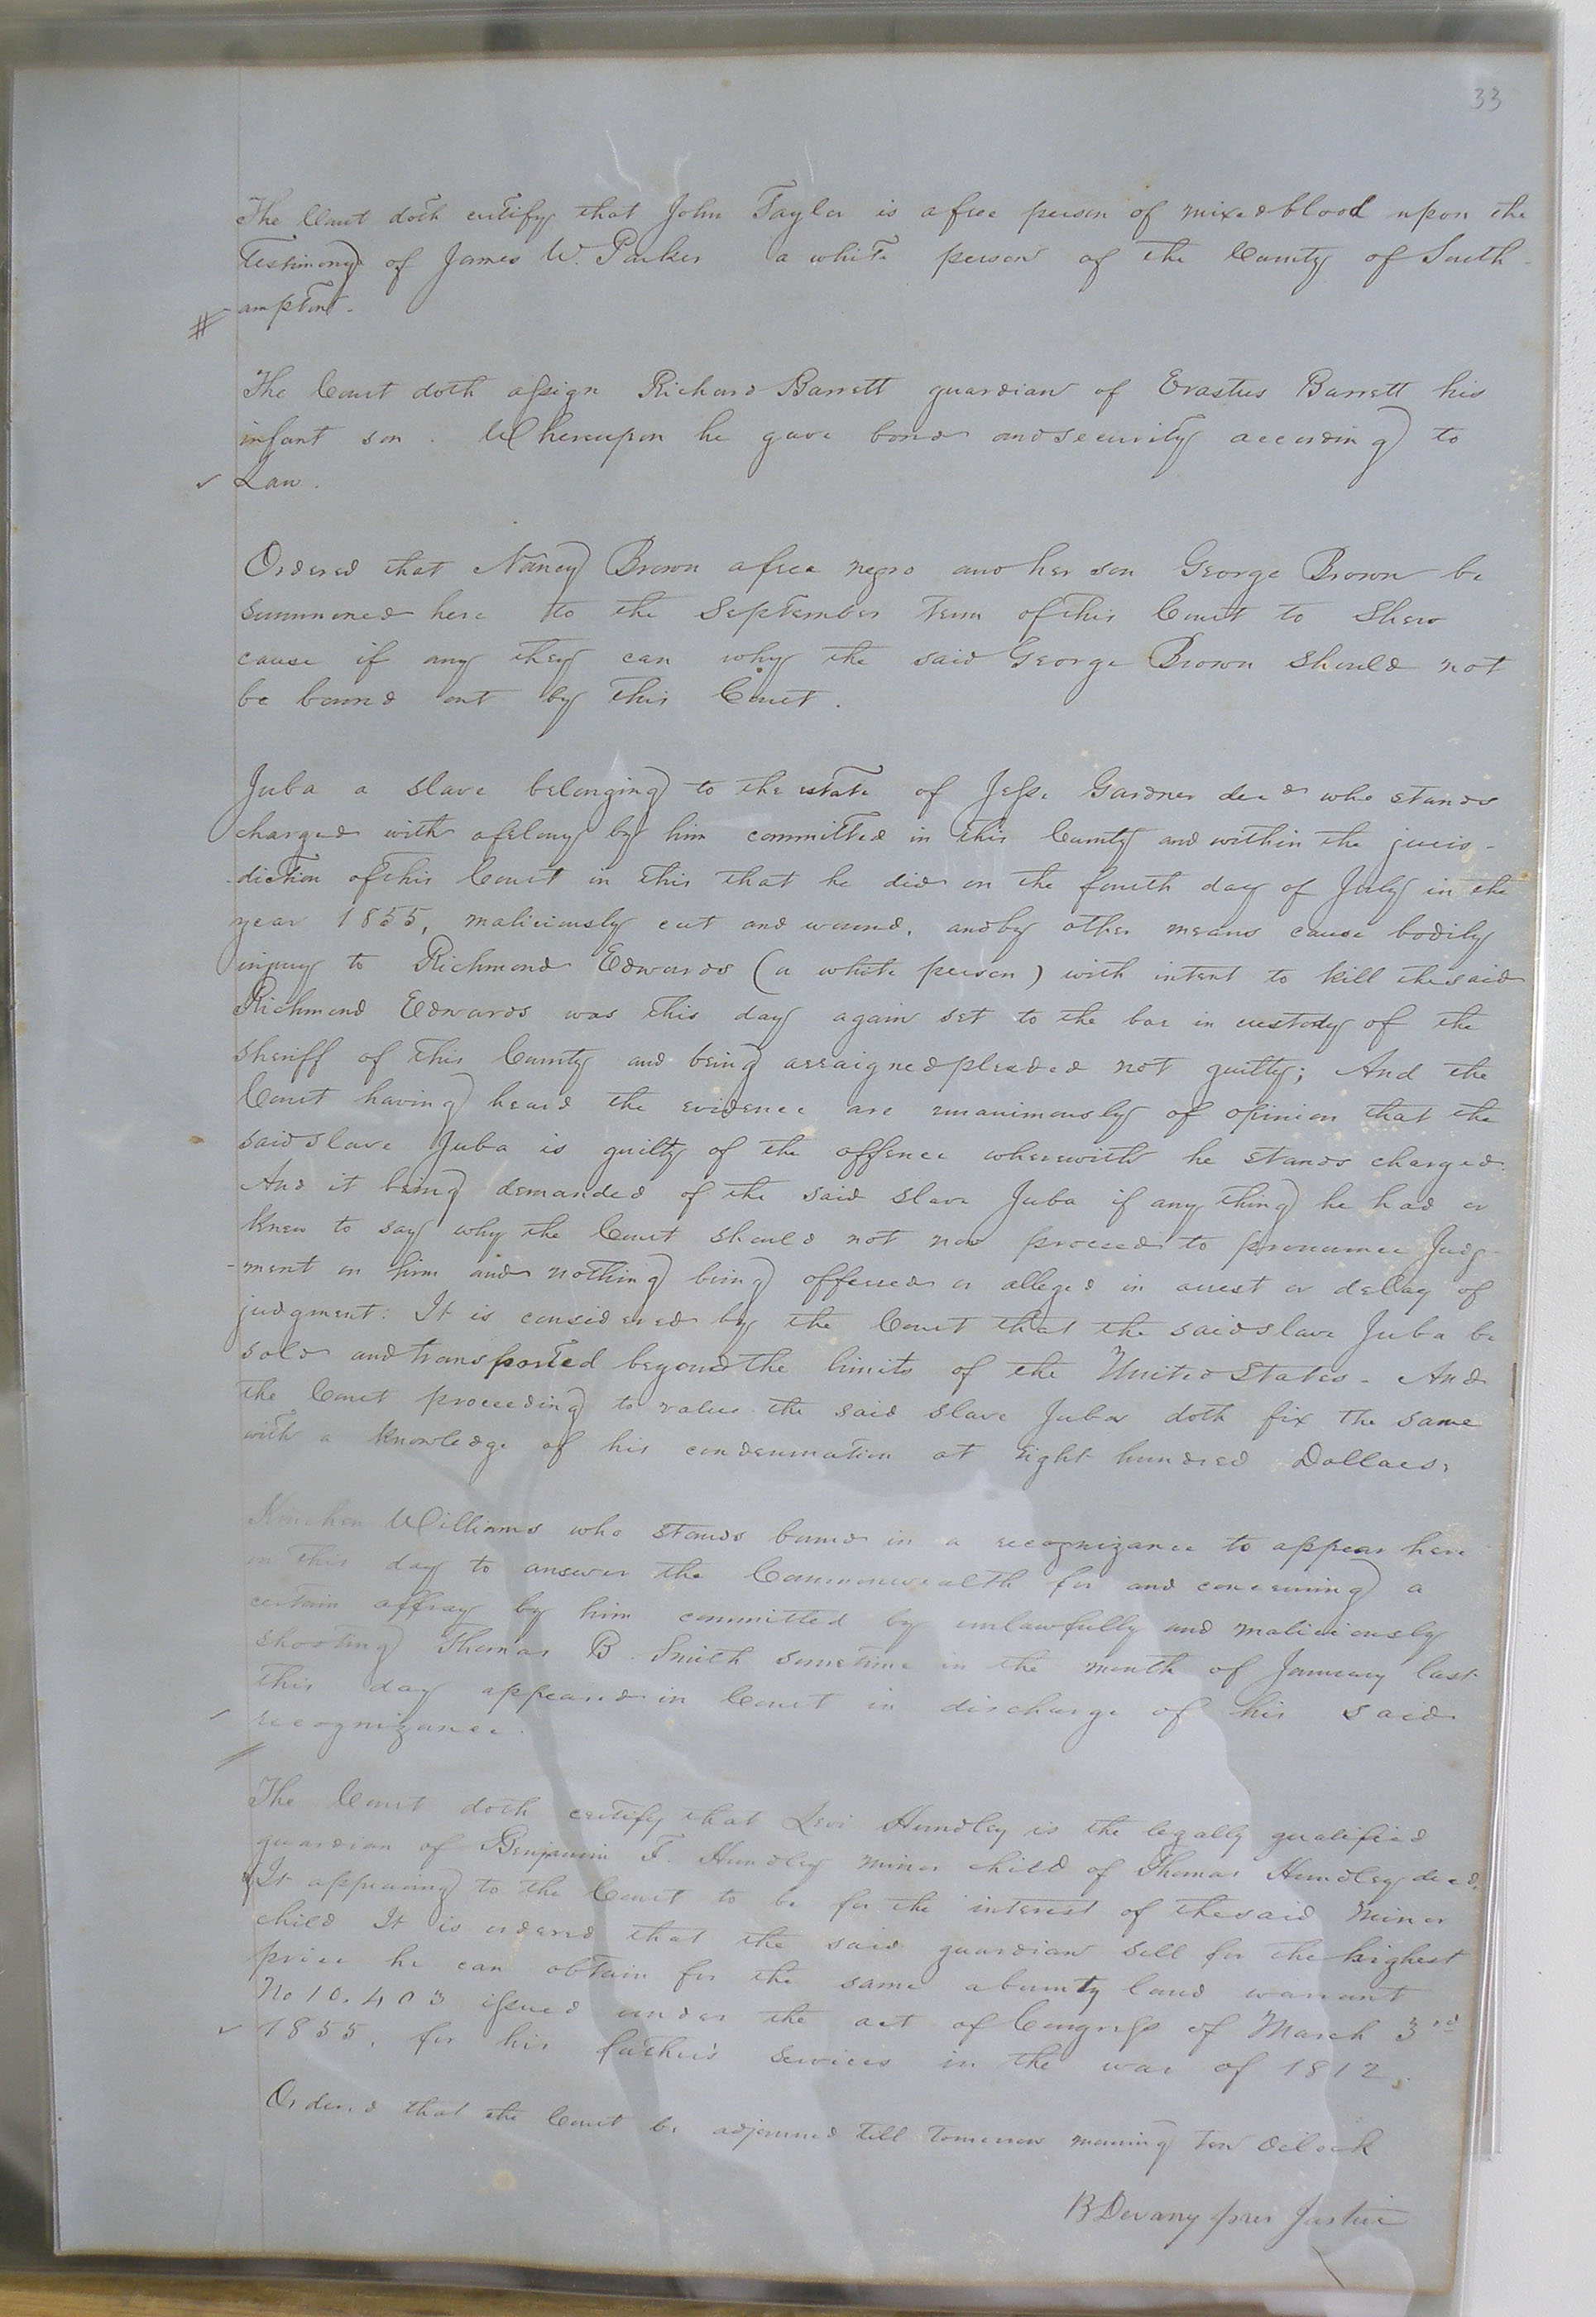 33
The Court doth certify that John Taylor is a free person of mixed blood upon the
testimony of James W. Parker a white person of the County of South-
ampton.
The Court doth assign Richard Barrett guardian of Erastus Barrett his
infant son. Whereupon he gave bond and security according to
Law.
Ordered that Nancy Brown a free negro and her son George Brown be
summoned here to the September term of this Court to Shew
cause if any they can why the said George Brown should not
be bound out by this Court.
Juba a slave belonging to the estate of Jesse Gardner decd who stands
charged with a felony by him committed in this County and within the juris-
-diction of this Court in this that he did on the fourth day of July in the
year 1855, maliciously cut and wound, and by other means cause bodily
injury to Richmond Edwards (a white person) with intent to kill the said
Richmond Edwards was this day again set to the bar in custody of the
Sheriff of this County and being arraigned pleaded not guilty; And the
Court having heard the evidence are unanimously of opinion that the
said slave Juba is guilty of the offence wherewith he stands charged
And it being demanded of the said slave Juba if any thing he had or
knew to say why the Court should not now proceed to pronounce Judg-
-ment on him and nothing being offered or alleged in arrest or delay of
judgment: It is considered by the Court that the said slave Juba be
sold and transported beyond the limits of the United States - And
the Court proceeding to value the said slave Juba doth fix the same
with a knowledge of his condemnation at eight hundred Dollars.
Kinchen Williams who stands bound in a recognizance to appear here
on this day to answer the Commonwealth for and concerning a
certain affray by him committed by unlawfully and maliciously
shooting Thomas B. Smith sometime in the month of January last
this day appeared in Court in discharge of his said
recognizance.
The Court doth certify that Levi Hundley is the legally qualified
guardian of Benjamin F. Hundley minor child of Thomas Hundley decd.
It appearing to the Court to be for the interest of the said minor
child It is ordered that the said guardian sell for the highest
price he can obtain for the same a bounty land warrant
No 10.403 issued under the act of Congress of March 3rd
1855, for his father's services in the war of 1812.
Ordered that the Court be adjourned till tomorrow morning ten Oclock
B Devany pres Justice